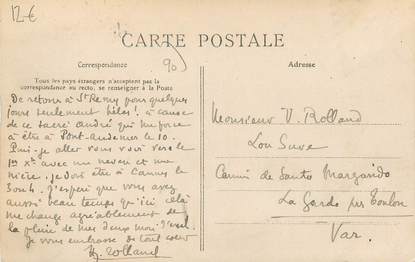 12€
CARTE POSTALE
90
Correspondance
Adresse
Tous les pays étrangers n'acceptent pas la
correspondance au recto, se renseigner à la Poste
De retour à St Remy pour quelques
jours seulement hélas! à cause
de ce sacré andré qui me force
à être à Pont-Audemer le 10.
Puis-je aller vous voir vers le
1er avec un neveu et ma
nièce. Je dois être à Cannes le
3 ou 4. J'espère que vous avez
aussi beau temps qu'ici cela
me change agréablement de
la pluie de mes deux mois
Je vous embrasse de tout coeur
Rolland
Monsieur V. Rolland
Lou Suve
Camin de Santo Margarido
La Garde par Toulon
Var.